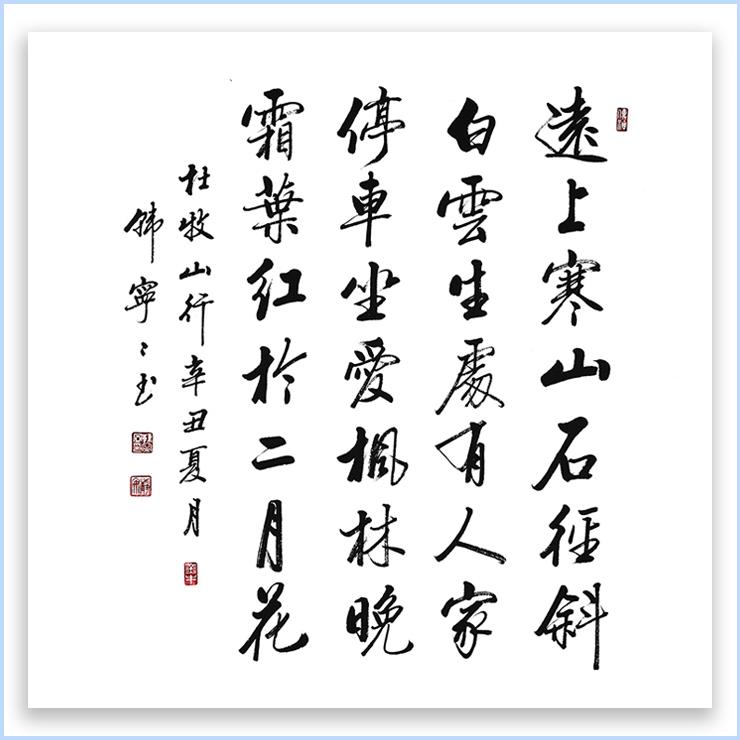 遠上寒山石徑斜
白雲生處有人家
停車坐愛楓林晚
霜葉紅於二月花
杜牧山行辛丑夏月
韩寧寧玉